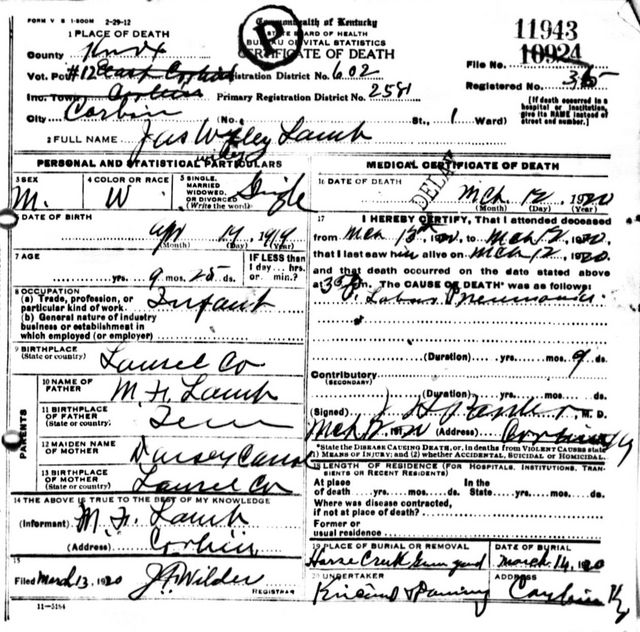 FORM V S 1-500M 2-29-12
Commonwealth of Kentucky
STATE BOARD OF HEALTH
BUREAU OF VITAL STATISTICS
CERTIFICATE OF DEATH
P
11943
File No. 10924
Registered No. 365
(If death occurred in a hospital or institution, give its NAME instead of street and number.)
1 PLACE OF DEATH
County Knox
Vot. Pct. #12 East Corbin Registration District No. 602
Inc. Town Corbin Primary Registration District No. 2581
City Corbin (No. St., 1 Ward)
2 FULL NAME Jas Lamb
PERSONAL AND STATISTICAL PARTICULARS
3 SEX M.
4 COLOR OR RACE W
5 SINGLE, MARRIED WIDOWED, OR DIVORCED (Write the word) Single
6 DATE OF BIRTH
apr 17 1919
(Month) (Day) (Year)
7 AGE
yrs. 9 mos. 25 ds.
IF LESS than 1 day... hrs. or min.?
8 OCCUPATION
(a) Trade, profession, or particular kind of work. Infant
(b) General nature of industry business or establishment in which employed (or employer)
9 BIRTHPLACE (State or country) Laurel Co
PARENTS
10 NAME OF FATHER M. F. Lamb
11 BIRTHPLACE OF FATHER (State or country) Tenn
12 MAIDEN NAME OF MOTHER Dorsey
13 BIRTHPLACE OF MOTHER (State or country) Laurel Co
14 THE ABOVE IS TRUE TO THE BEST OF MY KNOWLEDGE
(Informant) M. F. Lamb
(Address) Corbin
15
Filed March 13, 1920 J F Wilder
REGISTRAR
11-5184
MEDICAL CERTIFICATE OF DEATH
DELAY
16 DATE OF DEATH
Mch. 12, 1920
(Month) (Day) (Year)
17 I HEREBY CERTIFY, That I attended deceased
from Mch 1920, to Mch 12, 1920,
that I last saw him alive on Mch 12, 1920,
and that death occurred on the date stated above
at 3 m. The CAUSE OF DEATH* was as follows:
Lobar Pneumonia
(Duration) yrs. mos. 9 ds.
Contributory
(SECONDARY)
(Duration) yrs. mos. ds.
(Signed) M. D.
Mch 1920 (Address) Corbin Ky
*State the DISEASE CAUSING DEATH, or, in deaths from VIOLENT CAUSES state
1) MEANS OF INJURY; and (2) whether ACCIDENTAL, SUICIDAL or HOMICIDAL.
18 LENGTH OF RESIDENCE (FOR HOSPITALS, INSTITUTIONS, TRANSIENTS OR RECENT RESIDENTS)
At place of death yrs. mos. ds. In the State yrs. mos. ds.
Where was disease contracted, if not at place of death?
Former or usual residence
19 PLACE OF BURIAL OR REMOVAL
Horse Creek
DATE OF BURIAL
March 14, 1920
20 UNDERTAKER
ADDRESS
Corbin Ky